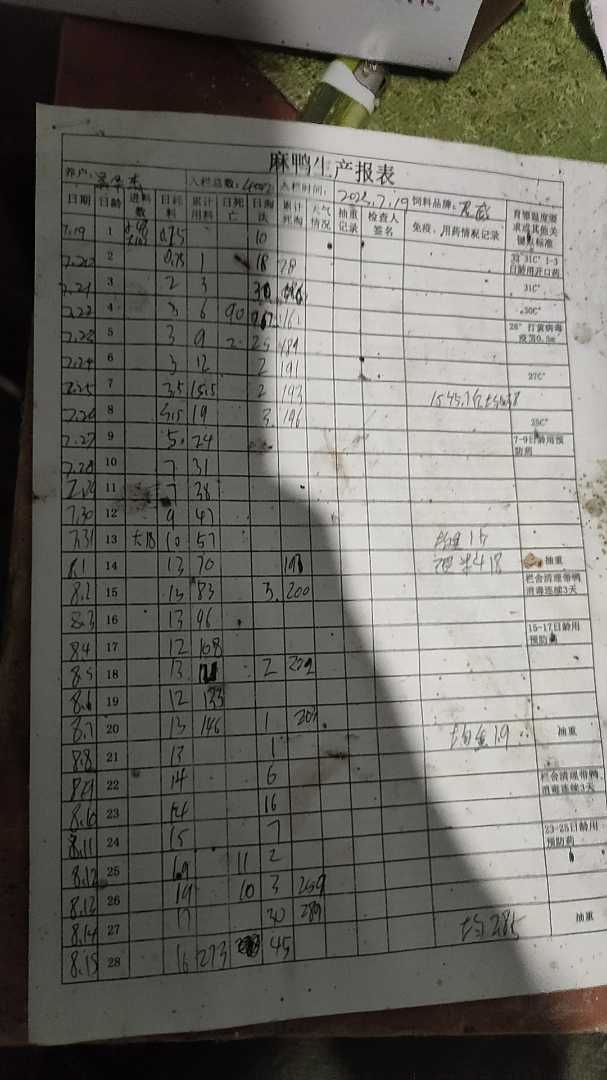 麻鸭生产报表
养户: 入栏总数: 4002 入栏时间: 2023.7.19 饲料品牌:
日期 日龄 进料数 日耗料 累计用料 日死亡 日淘汰 累计死淘 天气情况 抽重记录 检查人签名 免疫、用药情况记录 育雏温度要求或其他关键点标准
7.19 1 0.25 10
7.20 2 0.75 1 18 28 1-3日龄用开口药
7.21 3 2 3 31C°
7.22 4 3 6 90 161 30C°
7.23 5 3 9 2 25 189 28° 打黄病毒疫苗0.5
7.24 6 3 12 2 191 27C°
7.25 7 3.5 15.5 2 193
7.26 8 3.5 19 3 196 25C°
7.27 9 5 24 7-9日龄用预防药
7.28 10 7 31
7.29 11 7 38
7.30 12 9 47
7.31 13 大18 10 57 均重15
8.1 14 13 70 抽重
8.2 15 13 83 3 200 栏舍清理带鸭消毒连续3天
8.3 16 13 96
8.4 17 12 108 15-17日龄用预防药
8.5 18 13 2 202
8.6 19 12 133
8.7 20 13 146 1 203 均重19 抽重
8.8 21 13 1
8.9 22 14 6 栏舍清理带鸭消毒连续3天
8.10 23 14 16
8.11 24 15 7 23-25日龄用预防药
8.12 25 11 2
8.13 26 19 10 3 259
8.14 27 17 30 289 抽重
8.15 28 16 273 45 均285